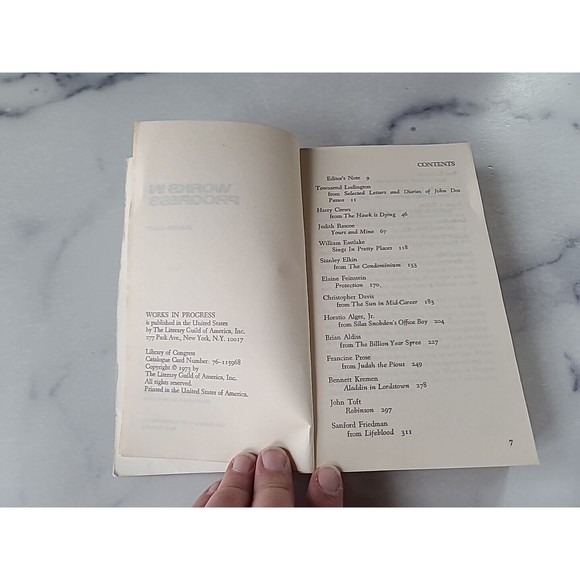 WORKS IN PROGRESS
is published in the United States
by The Literary Guild of America, Inc.
277 Park Ave., New York, N.Y. 10017
Library of Congress
Catalogue Card Number: 76-115968
Copyright © 1973 by
The Literary Guild of America, Inc.
All rights reserved.
Printed in the United States of America.
CONTENTS
Editor's Note 9
Townsend Ludington
from Selected Letters and Diaries of John Dos
Passos 11
Harry Crews
from The Hawk is Dying 46
Judith Rascoe
Yours and Mine 67
William Eastlake
Sings In Pretty Places 118
Stanley Elkin
from The Condominium 153
Elaine Feinstein
Protection 170
Christopher Davis
from The Sun in Mid-Career 183
Horatio Alger, Jr.
from Silas Snobden's Office Boy 204
Brian Aldiss
from The Billion Year Spree 227
Francine Prose
from Judah the Pious 249
Bennett Kremen
Aladdin in Lordstown 278
John Toft
Robinson 297
Sanford Friedman
from Lifeblood 311
7